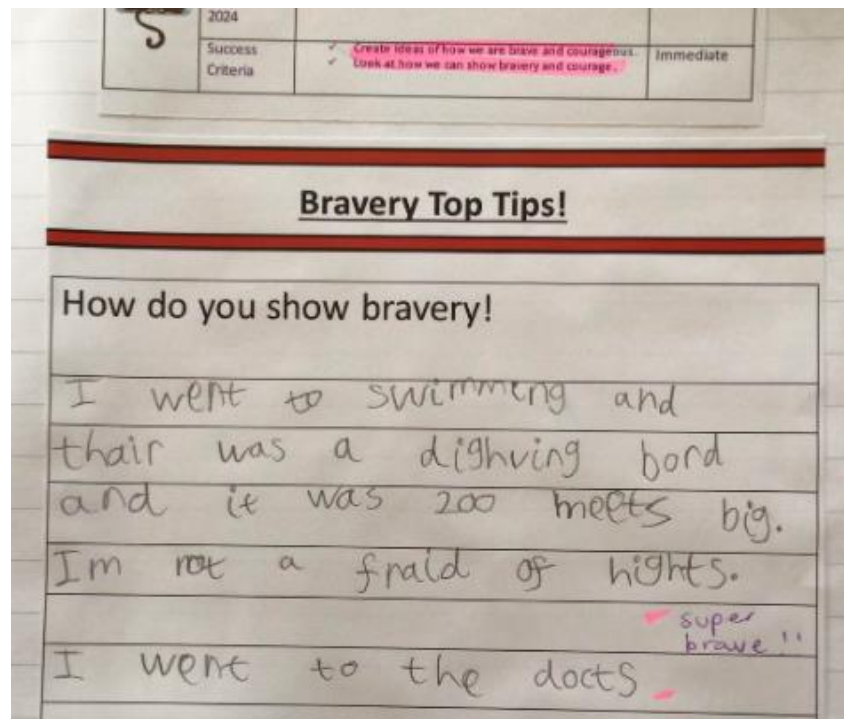 2024
Success
Criteria
✓ Create ideas of how we are brave and courageous.
✓ Look at how we can show bravery and courage.
Immediate
Bravery Top Tips!
How do you show bravery!
I went to swimmeng and
thair was a dighving bord
and it was 200 meets big.
Im not a fraid of hights.
super
brave!!
I went to the docts